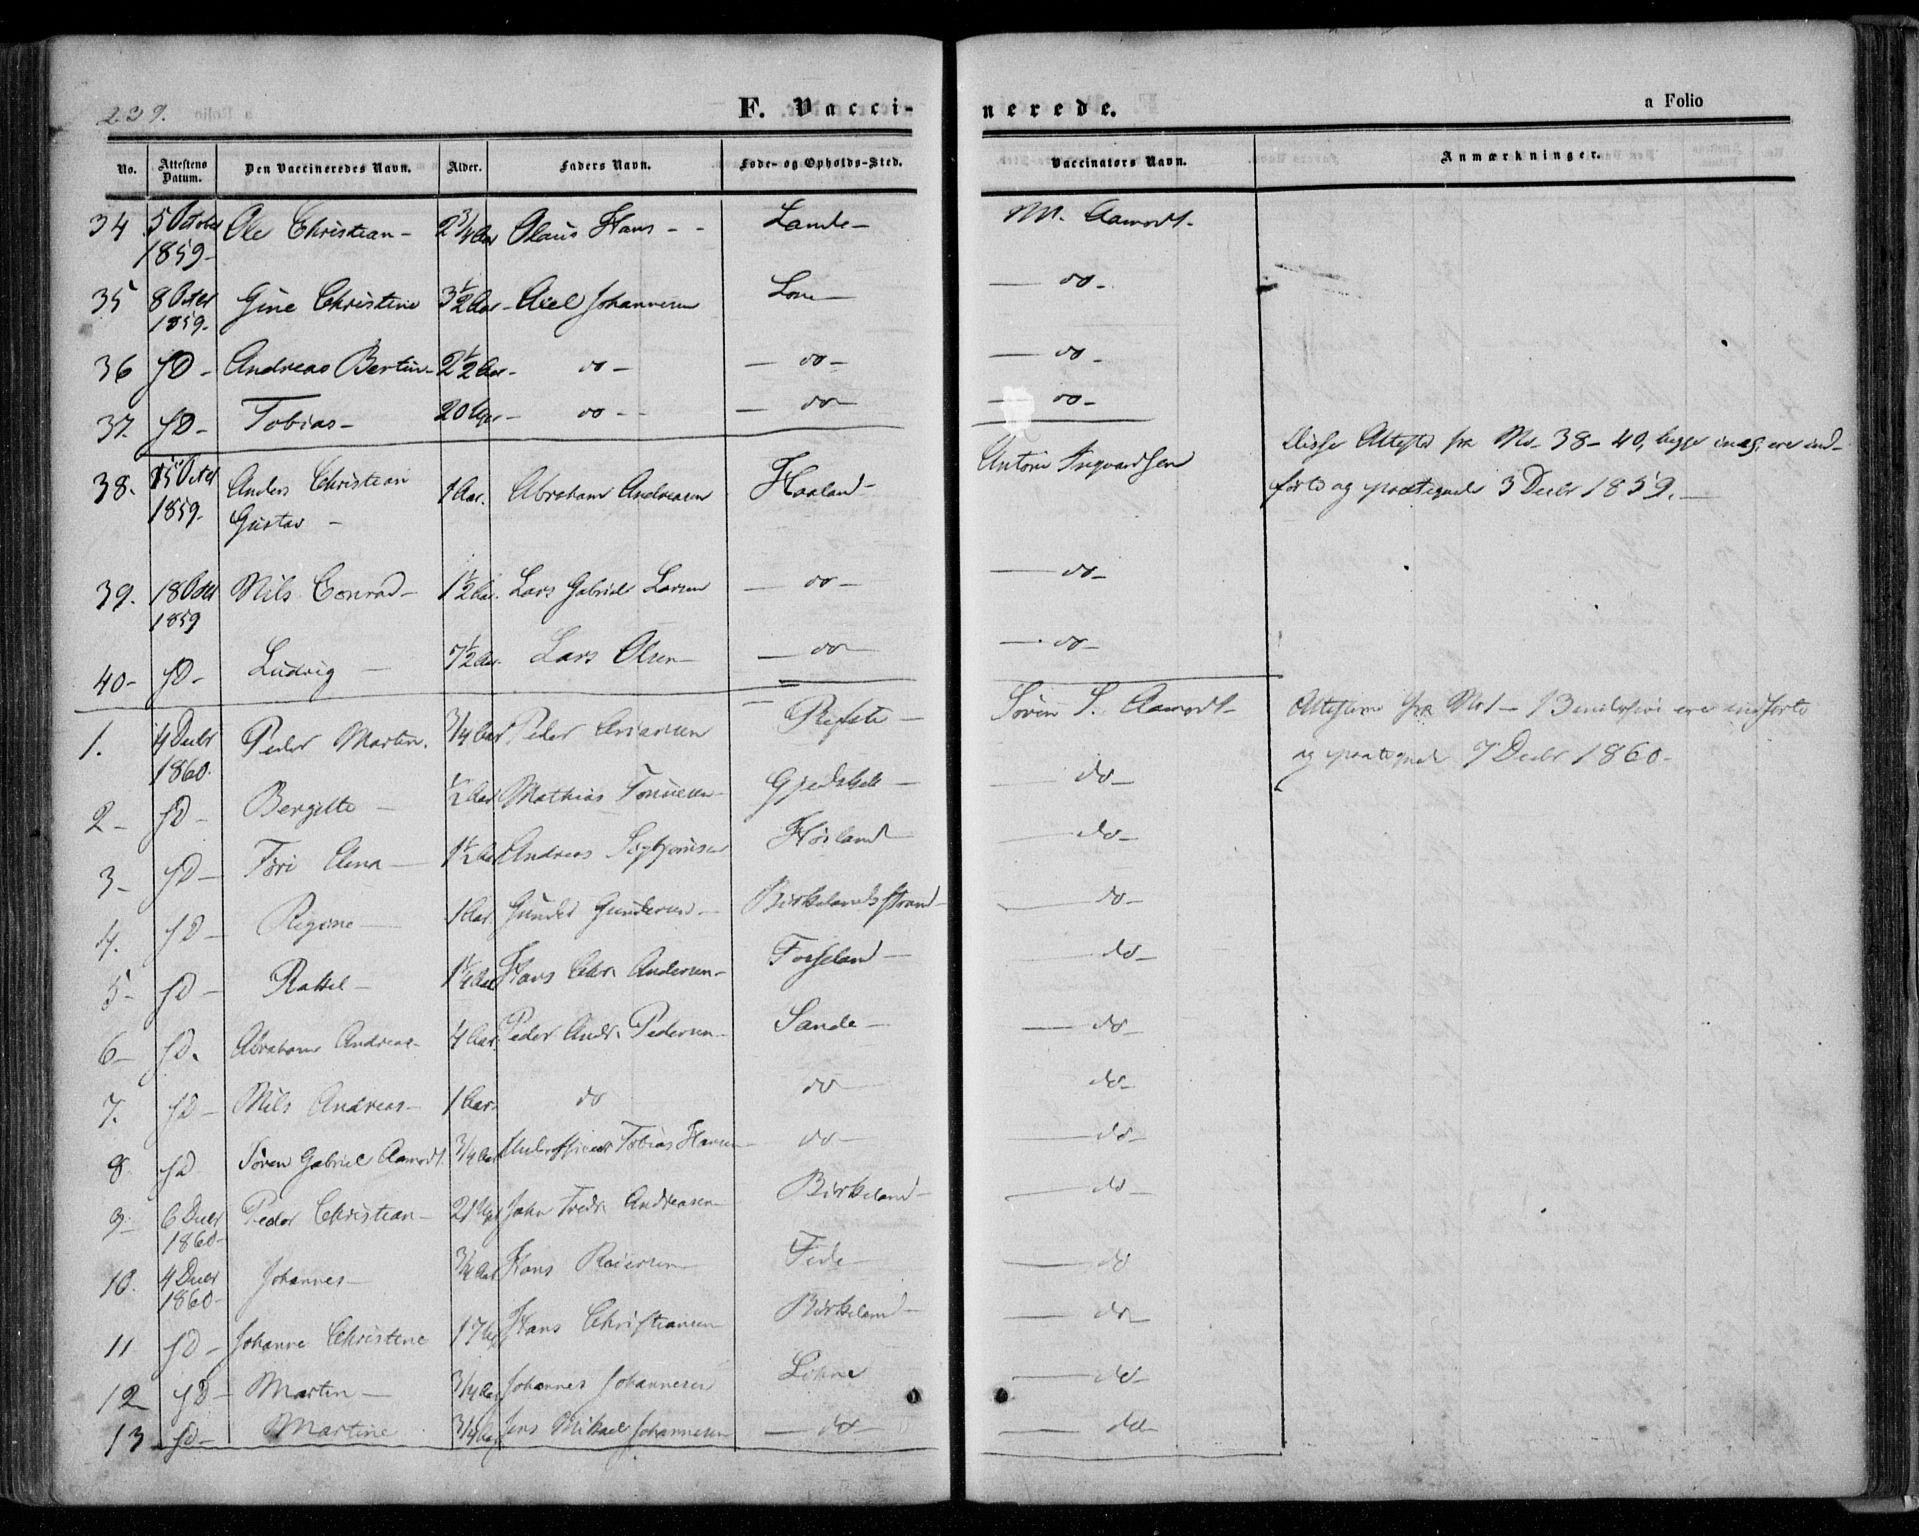 239.
F. Vacci-
nerede.
a Folio
No. Attestens Datum. Den Vaccineredes Navn. Alder. Faders Navn. Føde- og Opholds-Sted. Vaccinators Navn. Anmærkninger.
34 5 October 1859 - Ole Christian - 2 3/4 Aar Olaus Hans - - Lande - M. Aamodt -
35 8 Octbr 1859. Gine Christine 3 1/2 Aar - Axel Johannesen Lone - do -
36 sD - Andreas Bertin - 2 1/2 Aar - do - - do - - do -
37. sD - Tobias - 20 Ugr - do - - - do - - do -
38. 15 Octbr 1859. Anders Christian 1 Aar. Abraham Andreasen Haaland - Antoni Ingvardsen Disse Attester fra No. 38-40, begge incl., ere ind-
Gustav - førte og paategnede 3 Decbr 1859. -
39. 18 Octbr 1859 Nils Conrad - 1 1/2 Aar. Lars Gabriel Larsen - do - - do -
40 - sD - Ludvig - 7 1/2 Aar. Lars Olsen - - do - - do -
1. 4 Decbr 1860. Peder Martin. 3/4 Aar Peder Arianson - Søren S. Aamodt - Attesterne fra No 1 - 13 inclusive ere indførte
og paategnede 7 Decbr 1860 -
2 - sD - Bergitte - 1/2 Aar Mathias Tønnesen - - do -
3 - sD - Tøri Elena - 1 1/2 Aar Andreas Sigbjørnsen Høiland - do -
4. sD - Regine - 1 Aar. Gunder Gundersen - Birkelandsstrand - do -
5 - sD - Rakel - 1 1/4 Aar Hans Chr. Andersen - Fosseland - do -
6 - sD. Abraham Andreas - 4 Aar. Peder Andr. Pedersen - Sande - - do -
7. sD - Nils Andreas - 1 Aar - do do - do -
8. sD Søren Gabriel Aamodt. 3/4 Aar Underofficier Tobias Hansen - do - - do -
9. 6 Decbr 1860 - Peder Christian - 21 Ugr John Fredr. Andreasen - Birkeland - - do -
10. 4 Decbr 1860 - Johannes - 3/4 Aar Hans Reiersen - Fede - - do
11 sD - Johanne Christine 17 Ugr Hans Christiansen Birkeland - - do -
12 sD - Martin - 3/4 Aar Johannes Johannesen Lohne - do -
13 sD - Martine 3/4 Aar Jens Mikael Johannesen - do - - do -